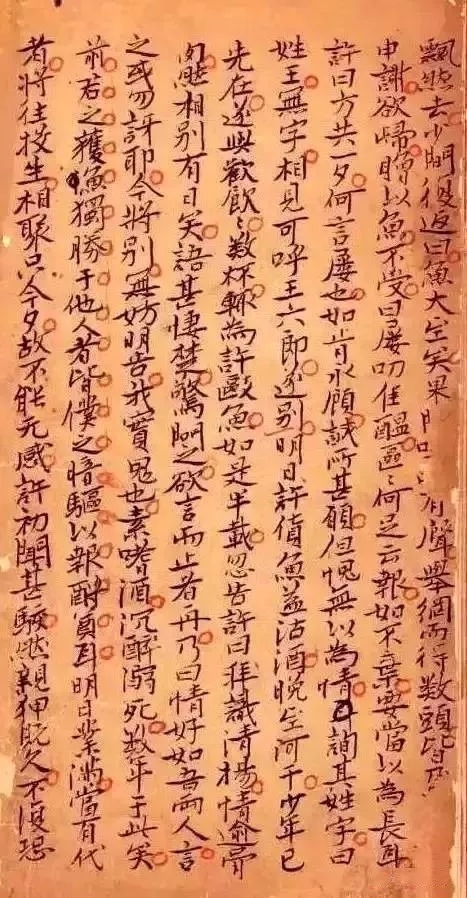 飄然去少間復返曰魚大至矣果有聲舉網而得數頭皆
申謝欲歸贈以魚不受曰屢叨佳醞區〻何足云報如不棄要當以為長耳
許曰方共一夕何言屢也如肯永顧誠所甚願但愧無以為情詢其姓字曰
姓王無字相見可呼王六郎遂別明日許貨魚益沽酒晚至河干少年已
先在遂與歡飲〻數杯輒為許敺魚如是半載忽告許曰拜識清揚情逾骨
肉然相別有日矣語甚悽楚驚問之欲言而止者再乃曰情好如吾兩人言
之或勿訝耶今將別無妨明告我實鬼也素嗜酒沉醉溺死數年于此矣
前君之獲魚獨勝于他人者皆僕之暗驅以報酹奠耳明日業滿當有代
者將往投生相聚只今夕故不能无感許初聞甚駭然親狎既久不復恐